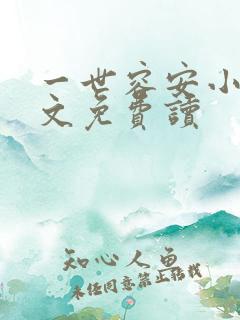 一世容安小
文免費讀
知心人魚
未经同意禁止转载